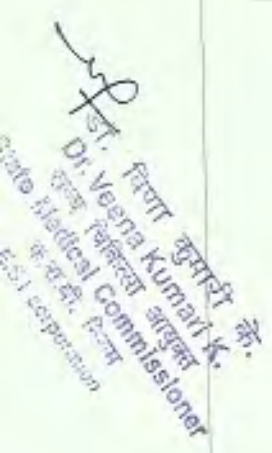 डॉ. विणा कुमारी के.
Dr. Veena Kumari K.
राज्य चिकित्सा आयुक्त
State Medical Commissioner
क.रा.बी. निगम
E.S.I corporation